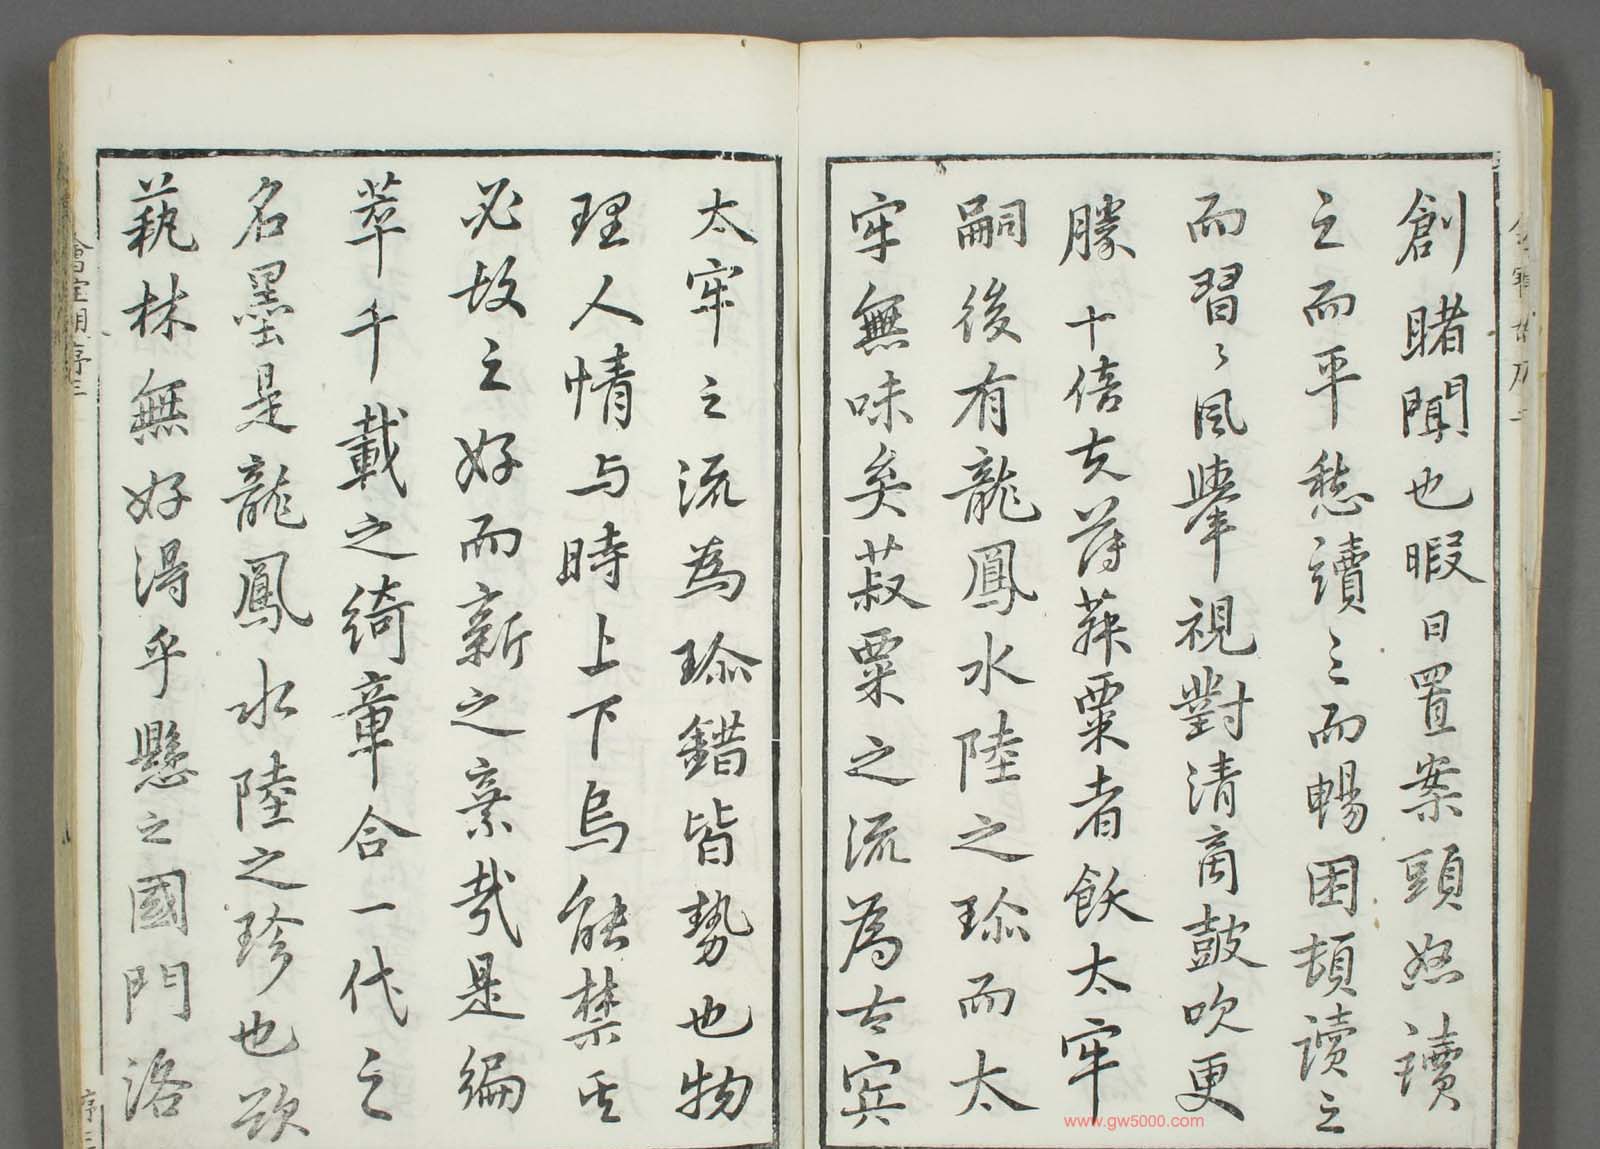 創睹聞也暇日置案頭怒讀
之而平愁讀之而暢困頓讀之
而習〻風舉視對清商鼓吹更
勝十倍夫薄菽粟者飫太牢
嗣後有龍鳳水陸之珍而太
牢無味矣菽粟之流為古宾
太牢之流為珍錯皆勢也物
理人情与時上下烏能禁其
必故之好而新之棄哉是編
萃千載之綺章合一代之
名墨是龍鳳水陸之珍也欲
藝林無好得乎懸之國門洛
序三
www.gw5000.com